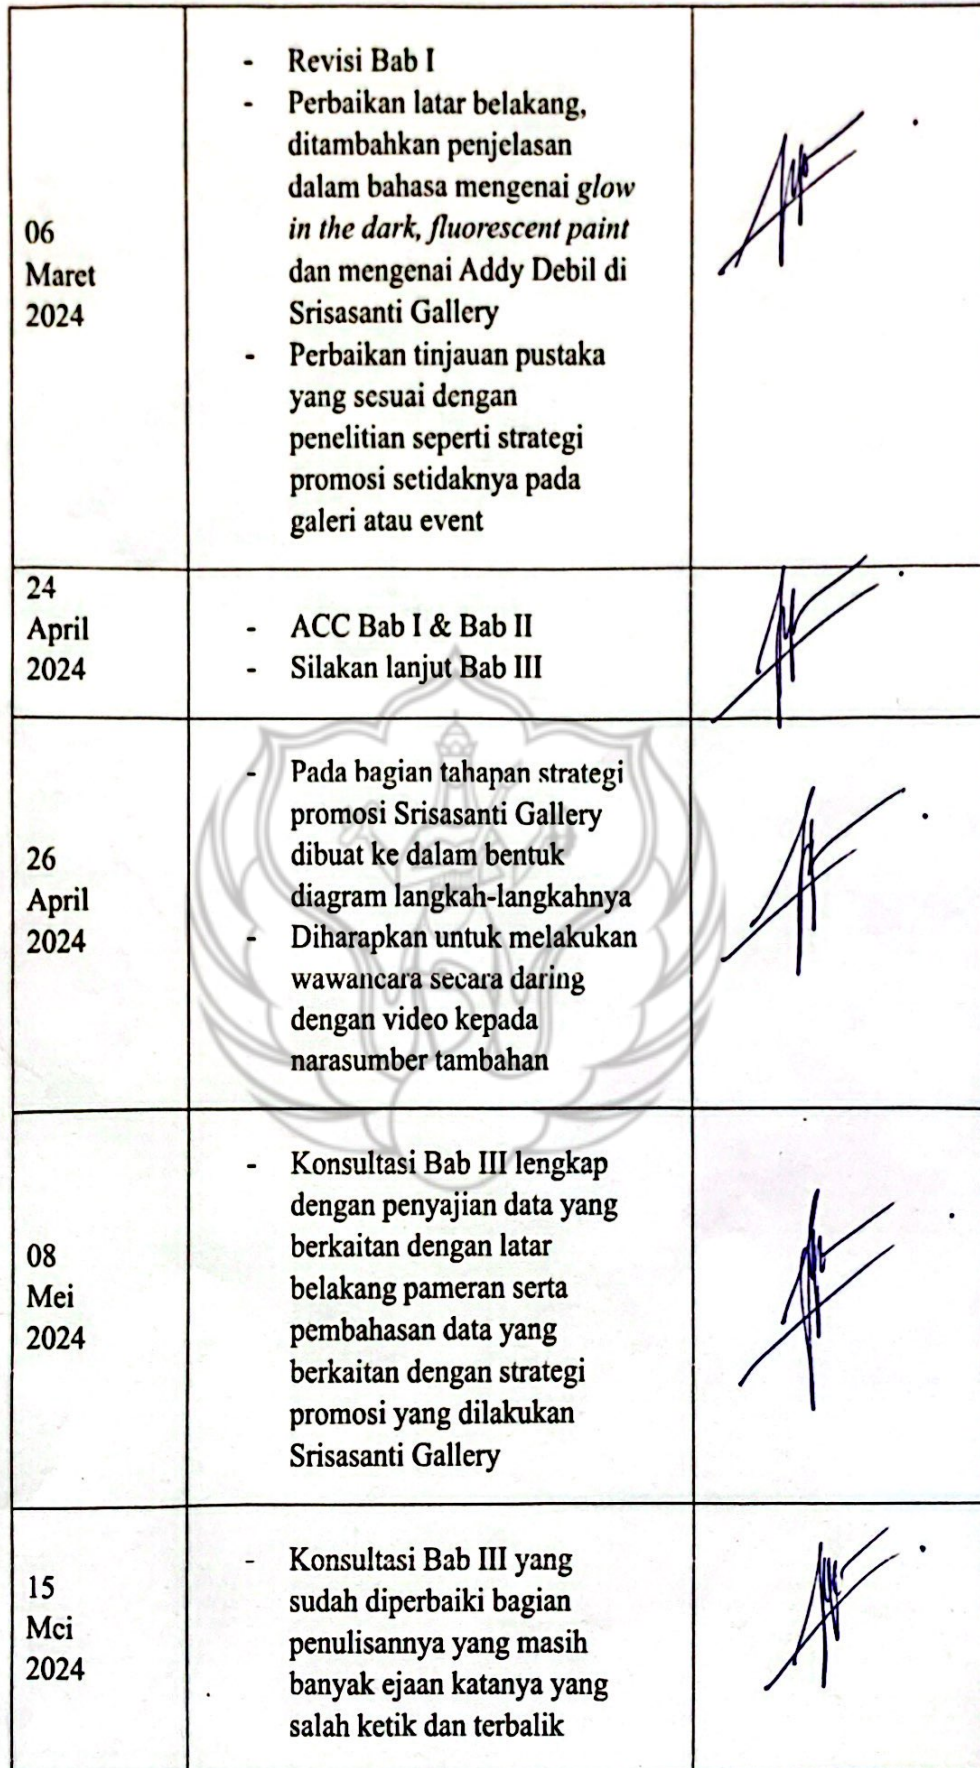 06
Maret
2024
- Revisi Bab I
- Perbaikan latar belakang,
ditambahkan penjelasan
dalam bahasa mengenai glow
in the dark, fluorescent paint
dan mengenai Addy Debil di
Srisasanti Gallery
- Perbaikan tinjauan pustaka
yang sesuai dengan
penelitian seperti strategi
promosi setidaknya pada
galeri atau event
24
April
2024
- ACC Bab I & Bab II
- Silakan lanjut Bab III
26
April
2024
- Pada bagian tahapan strategi
promosi Srisasanti Gallery
dibuat ke dalam bentuk
diagram langkah-langkahnya
- Diharapkan untuk melakukan
wawancara secara daring
dengan video kepada
narasumber tambahan
08
Mei
2024
- Konsultasi Bab III lengkap
dengan penyajian data yang
berkaitan dengan latar
belakang pameran serta
pembahasan data yang
berkaitan dengan strategi
promosi yang dilakukan
Srisasanti Gallery
15
Mei
2024
- Konsultasi Bab III yang
sudah diperbaiki bagian
penulisannya yang masih
banyak ejaan katanya yang
salah ketik dan terbalik